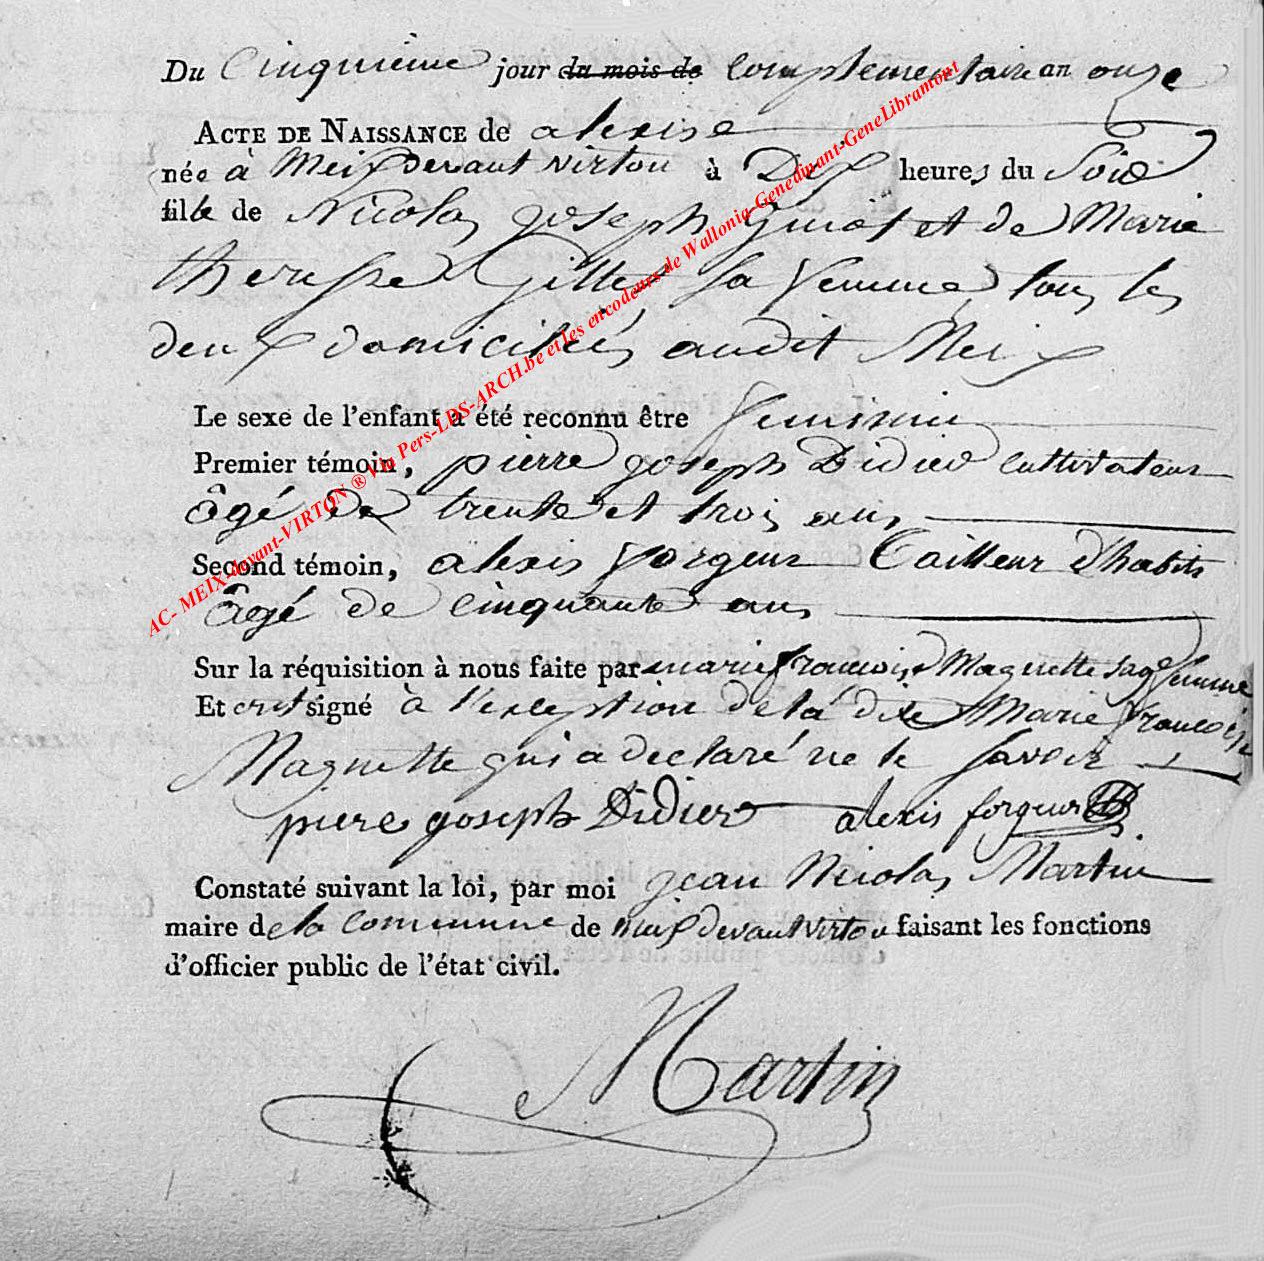 Du Cinquieme jour du mois de Complementaire an onze
ACTE DE NAISSANCE de alexise
née à Meix devant virton à Dix heures du Soir
fille de Nicolas joseph Guiot et de Marie
theresse Gilles sa femme tous les
deux domiciliés audit Meix
Le sexe de l'enfant a été reconnu être feminin
Premier témoin, pierre joseph Didier cultivateur
âgé de trente et trois ans
Second témoin, alexis forgeur Tailleur d'habits
âgé de cinquante ans
Sur la réquisition à nous faite par marie francoise Maguette sage femme
Et ont signé à l'exception de la dite Marie francoise
Maguette qui a declaré ne le savoir
piere joseph Didier alexis forgeur
Constaté suivant la loi, par moi jean Nicolas Martin
maire de la commune de meix devant virton faisant les fonctions
d'officier public de l'état civil.
Martin
AC- MEIX-devant-VIRTON ® Via Pers-LDS-ARCH.be et les encodeurs de Wallonia-Genedinant-GeneLibramont